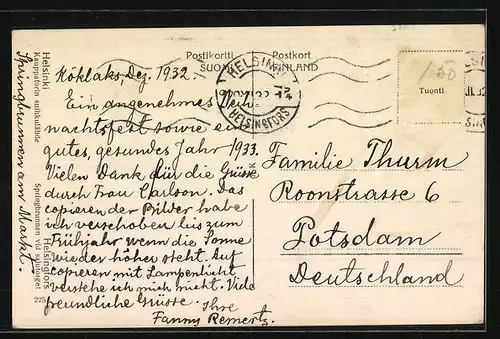 Postikortti Postkort
SUOMI FINLAND
HELSINKI
HELSINGFORS
Tuonti
Köklaks, Dez. 1932.
Ein angenehmes Weih
nachtsfest sowie ein
gutes, gesundes Jahr 1933.
Vielen Dank für die Grüsse
durch Frau Carlson. Das
copieren der Bilder habe
ich verschoben bis zum
Frühjahr wenn die Sonne
wieder höher steht. Auf
copieren mit Lampenlicht
verstehe ich mich nicht. Viele
freundliche Grüsse. Ihre
Fanny Remertz.
Familie Thurm
Roonstrasse 6
Potsdam
Deutschland
Helsinki
Kauppatorin suihkulähde
Helsingfors
Springbrunnen vid salutorget
Springbrunnen am Markt.